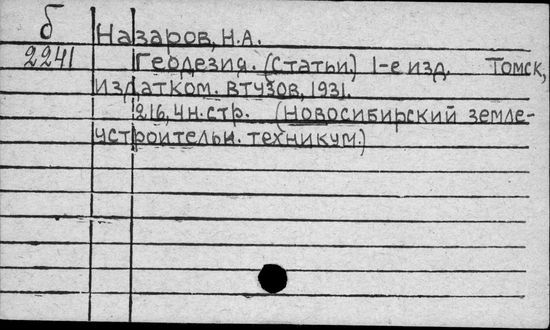 б
2241
Назаров, Н.А.
Геодезия. (Статьи.) 1-е изд. Томск,
издатком. втузов, 1931.
216, 4 н. стр. (Новосибирский земле-
устроительн. техникум.)